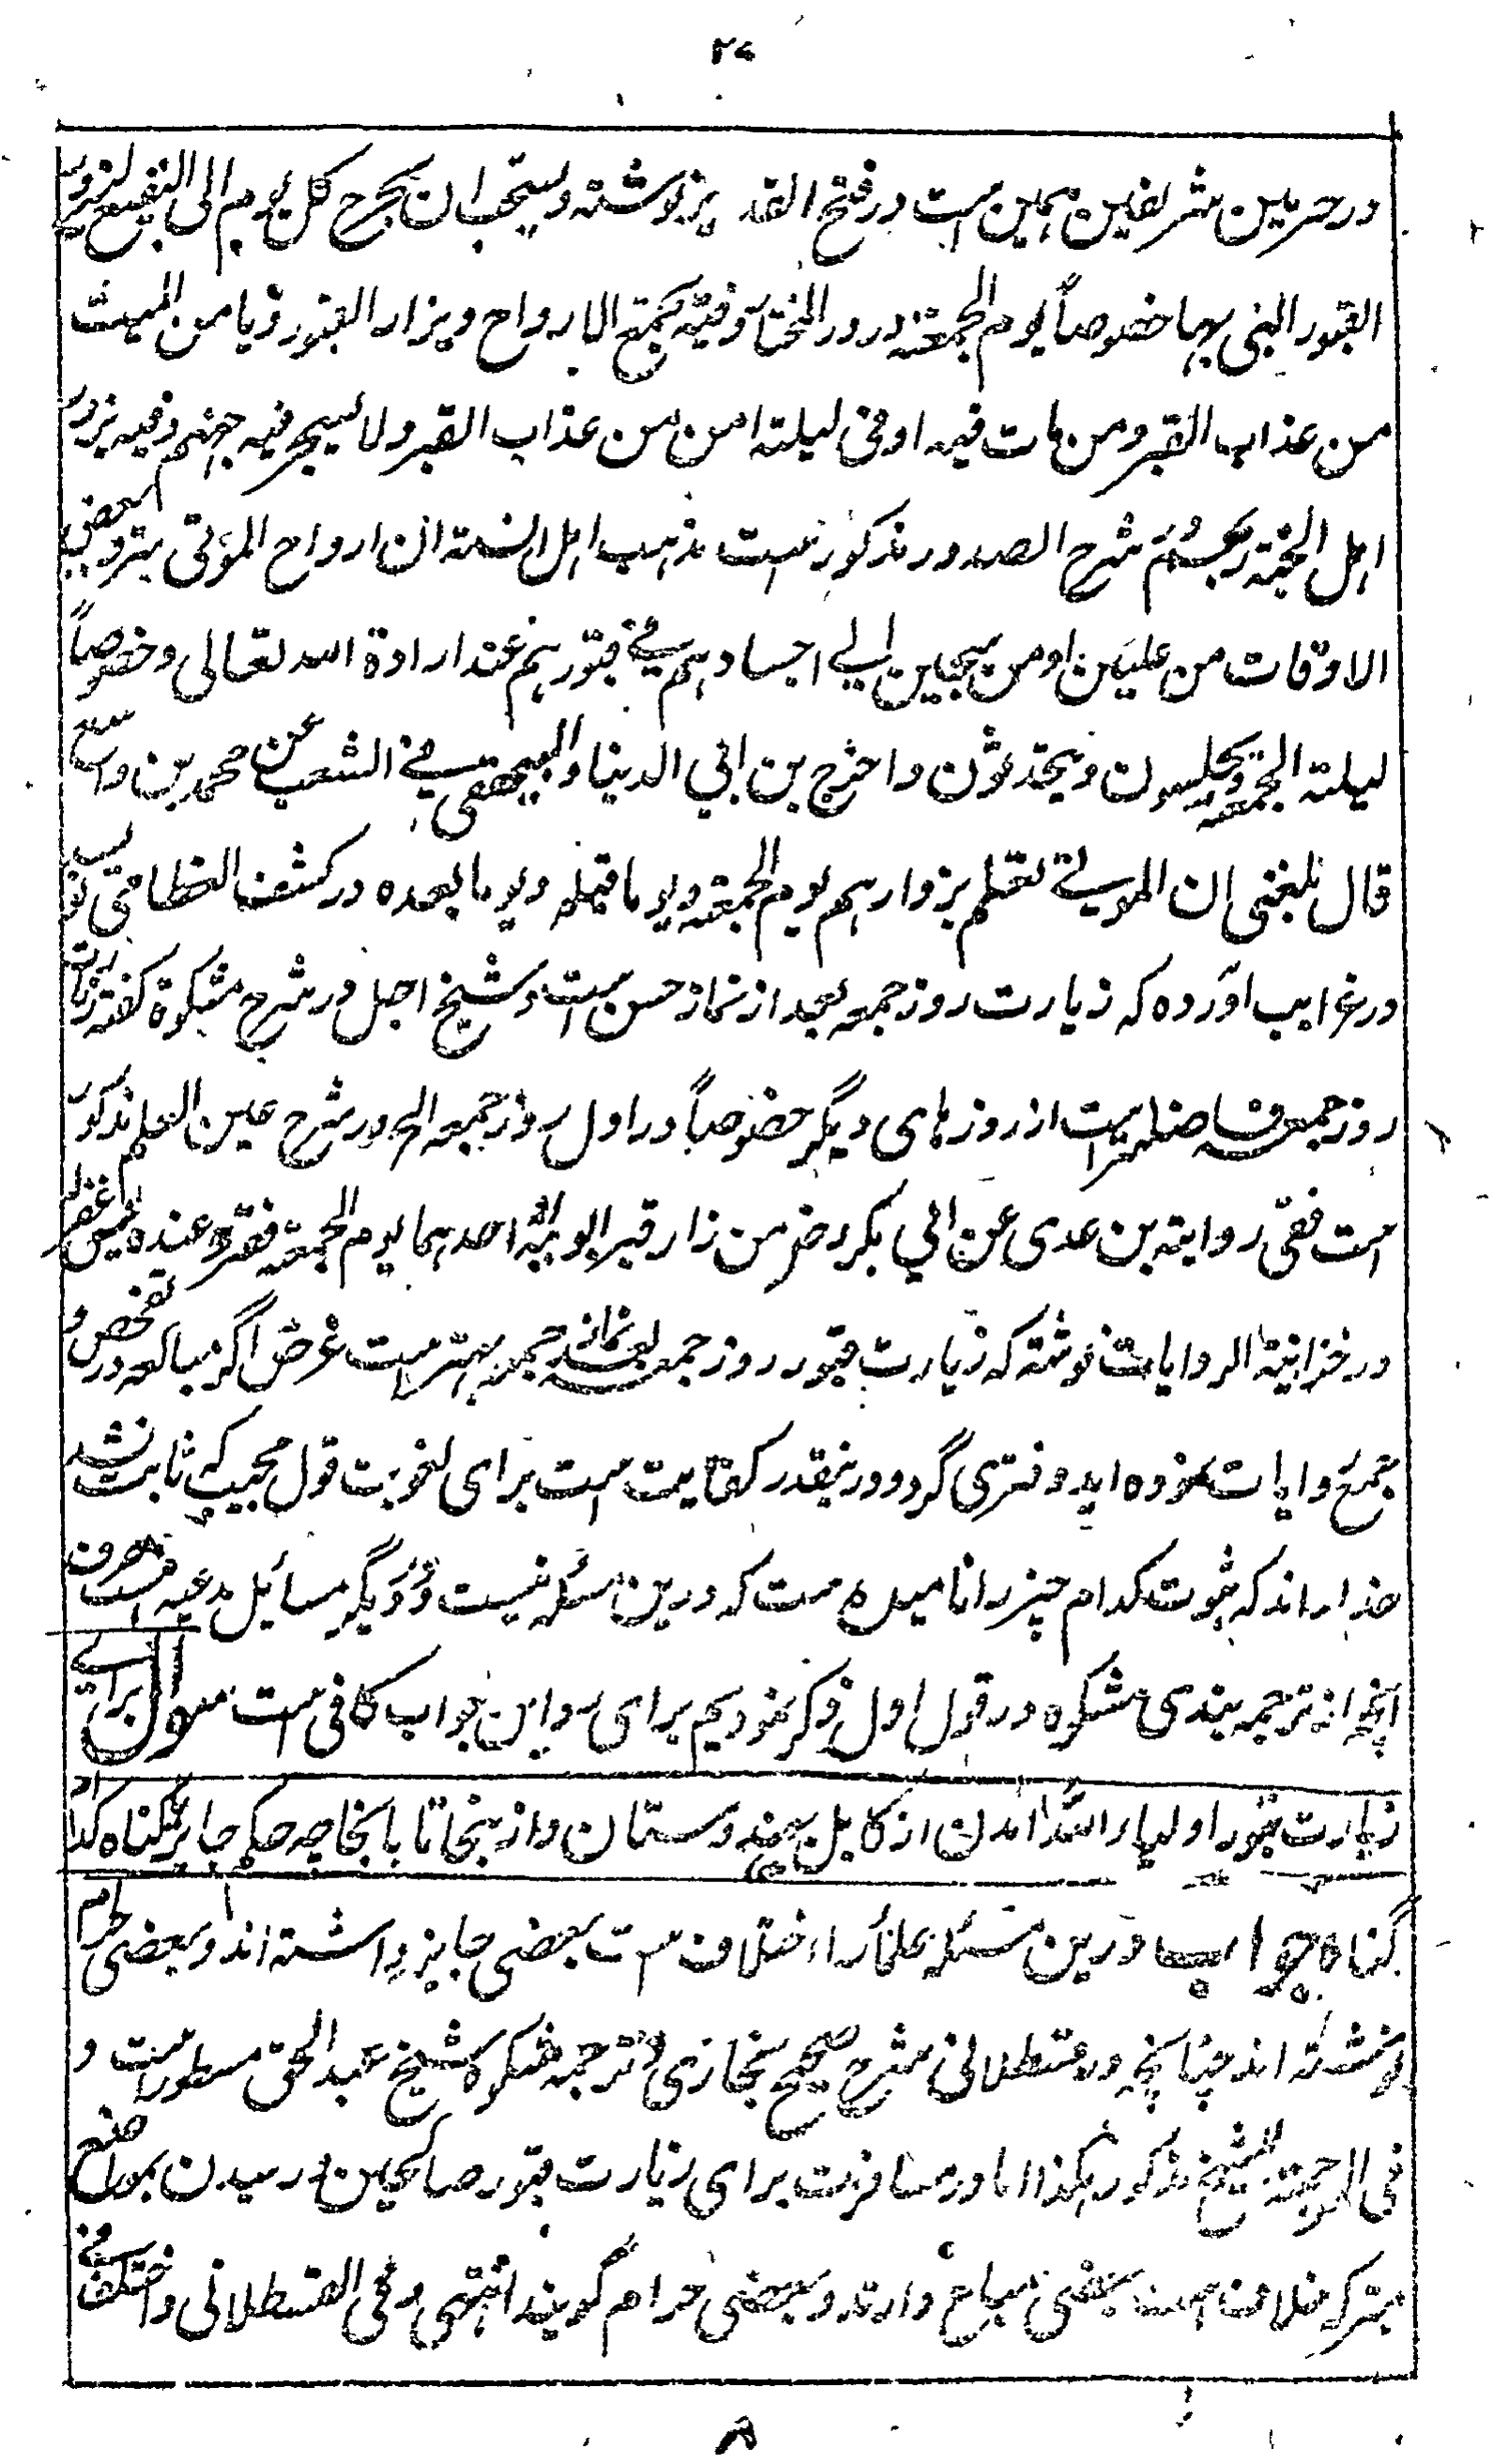 ۲۷
در حرمین شریفین همین است در فتح القدیر نوشته و یستحب ان یخرج کل یوم الی البقیع لزیارة
القبور التی بها خصوصاً یوم الجمعة و در در المختار و فیه تجمع الارواح و یزار القبور و یامن المیت
من عذاب القبر و من مات فیه او فی لیلته امن من عذاب القبر و لا یسجر فیه جهنم و فیه یزور
اهل الجنة ربهم شرح الصدور مذکور است مذهب اهل السنة ان ارواح الموتی ترد فی بعض
الاوقات من علیین او من سجین الی اجسادهم فی قبورهم عند ارادة الله تعالی و خصوصاً
لیلة الجمعة و یجلسون و یتحدثون و اخرج بن ابی الدنیا و البیهقی فی الشعب عن محمد بن واسع
قال بلغنی ان الموتی تعلم بزوارهم یوم الجمعة و یوما قبله و یوما بعده در کشف الغطا می نویسد
در غرایب آورده که زیارت روز جمعه بعد از نماز حسن است و شیخ اجل در شرح مشکوة گفته زیارت
روز جمعه فاضلتر است از روزهای دیگر خصوصاً در اول روز جمعه الخ در شرح عین العلم مذکور
است ففی روایة بن عدی عن ابی بکر رض من زار قبر ابویه او احدهما یوم الجمعة فقرء عنده یس غفر له
در خزانة الروایات نوشته که زیارت قبور روز جمعه بعد نماز جمعه بهتر است غرض اگر مبالغه در تفحص و
جمع روایات نموده اید دفتری گردد و رینقدر کفایت است برای لغویت قول مجیب که ثابت نشد
خدا داند که ثبوت کدام چیز را نامیده است که درین مسئله نیست و در دیگر مسائل مدعیه است صرف
آنچه از ترجمه هندی مشکوه در قول اول ذکر نمودیم برای رد این جواب کافی است سوال برای
زیارت قبور اولیاء الله آمدن از کابل بهندوستان و از ینجا تا بانجا چه حکم جایز یا گناه کدام
گناه جواب درین مسئله علما را اختلاف است بعضی جایز داشته اند و بعضی حرام
نوشته اند چنانچه در قسطلانی شرح صحیح بخاری و ترجمه مشکوة شیخ عبد الحق مسطور است و
فی الترجمة للشیخ مذکور هکذا اما در مسافرت برای زیارت قبور صالحین و رسیدن بمواضع
متبرکه خلاف است بعضی مباح دارند و بعضی حرام گویند انتهی و فی القسطلانی و اختلف فی
۸